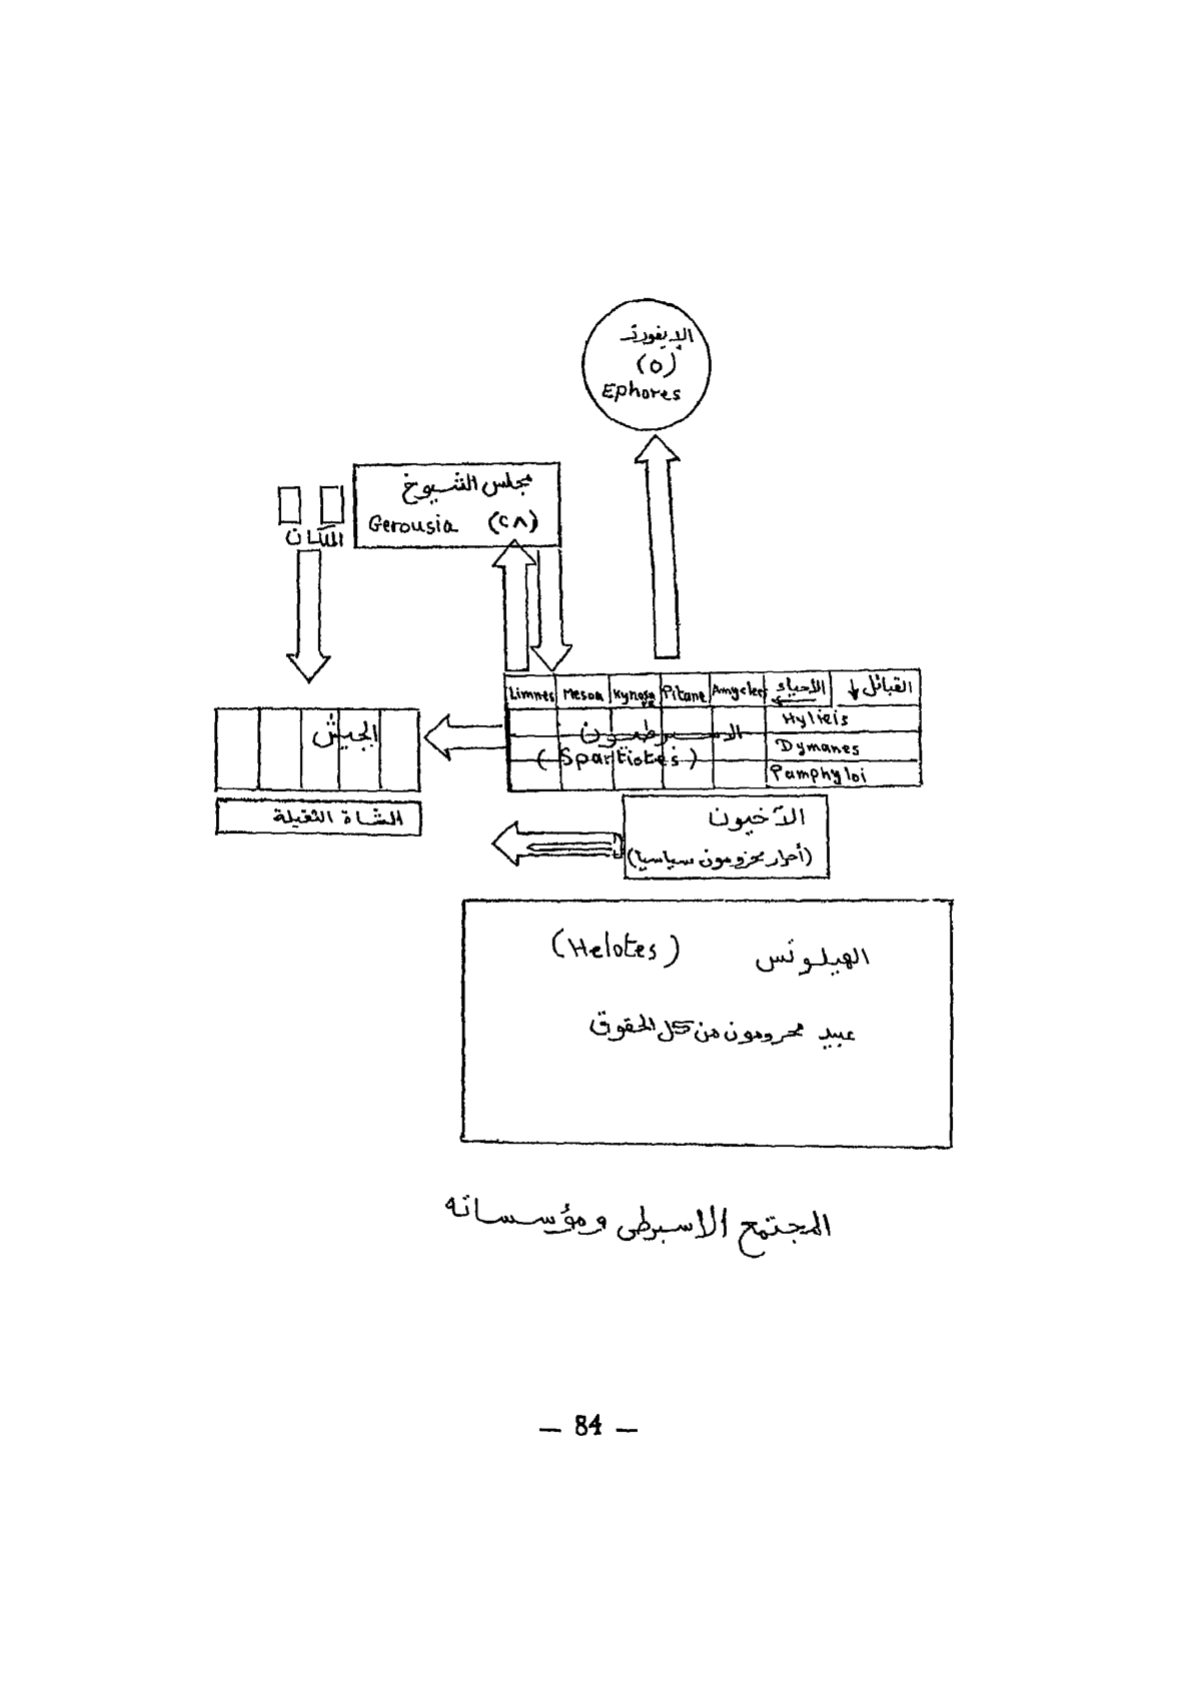 الإيفورتـ
(٥)
Ephores
مجلس الشيوخ
Gerousia (٢٨)
الملكان
القبائل ↓
الأحياء ←
Amyclees
Pitane
Mesoa
Limnes
Hylieis
Dymanes
Pamphyloi
الاسبرطيون
(Spartiotes)
الجيش
المشاة الثقيلة
الآخيون
(أحرار محرومون سياسيا)
الهيلوتس (Helotes)
عبيد محرومون من كل الحقوق
المجتمع الاسبرطى ومؤسساته
— 84 —